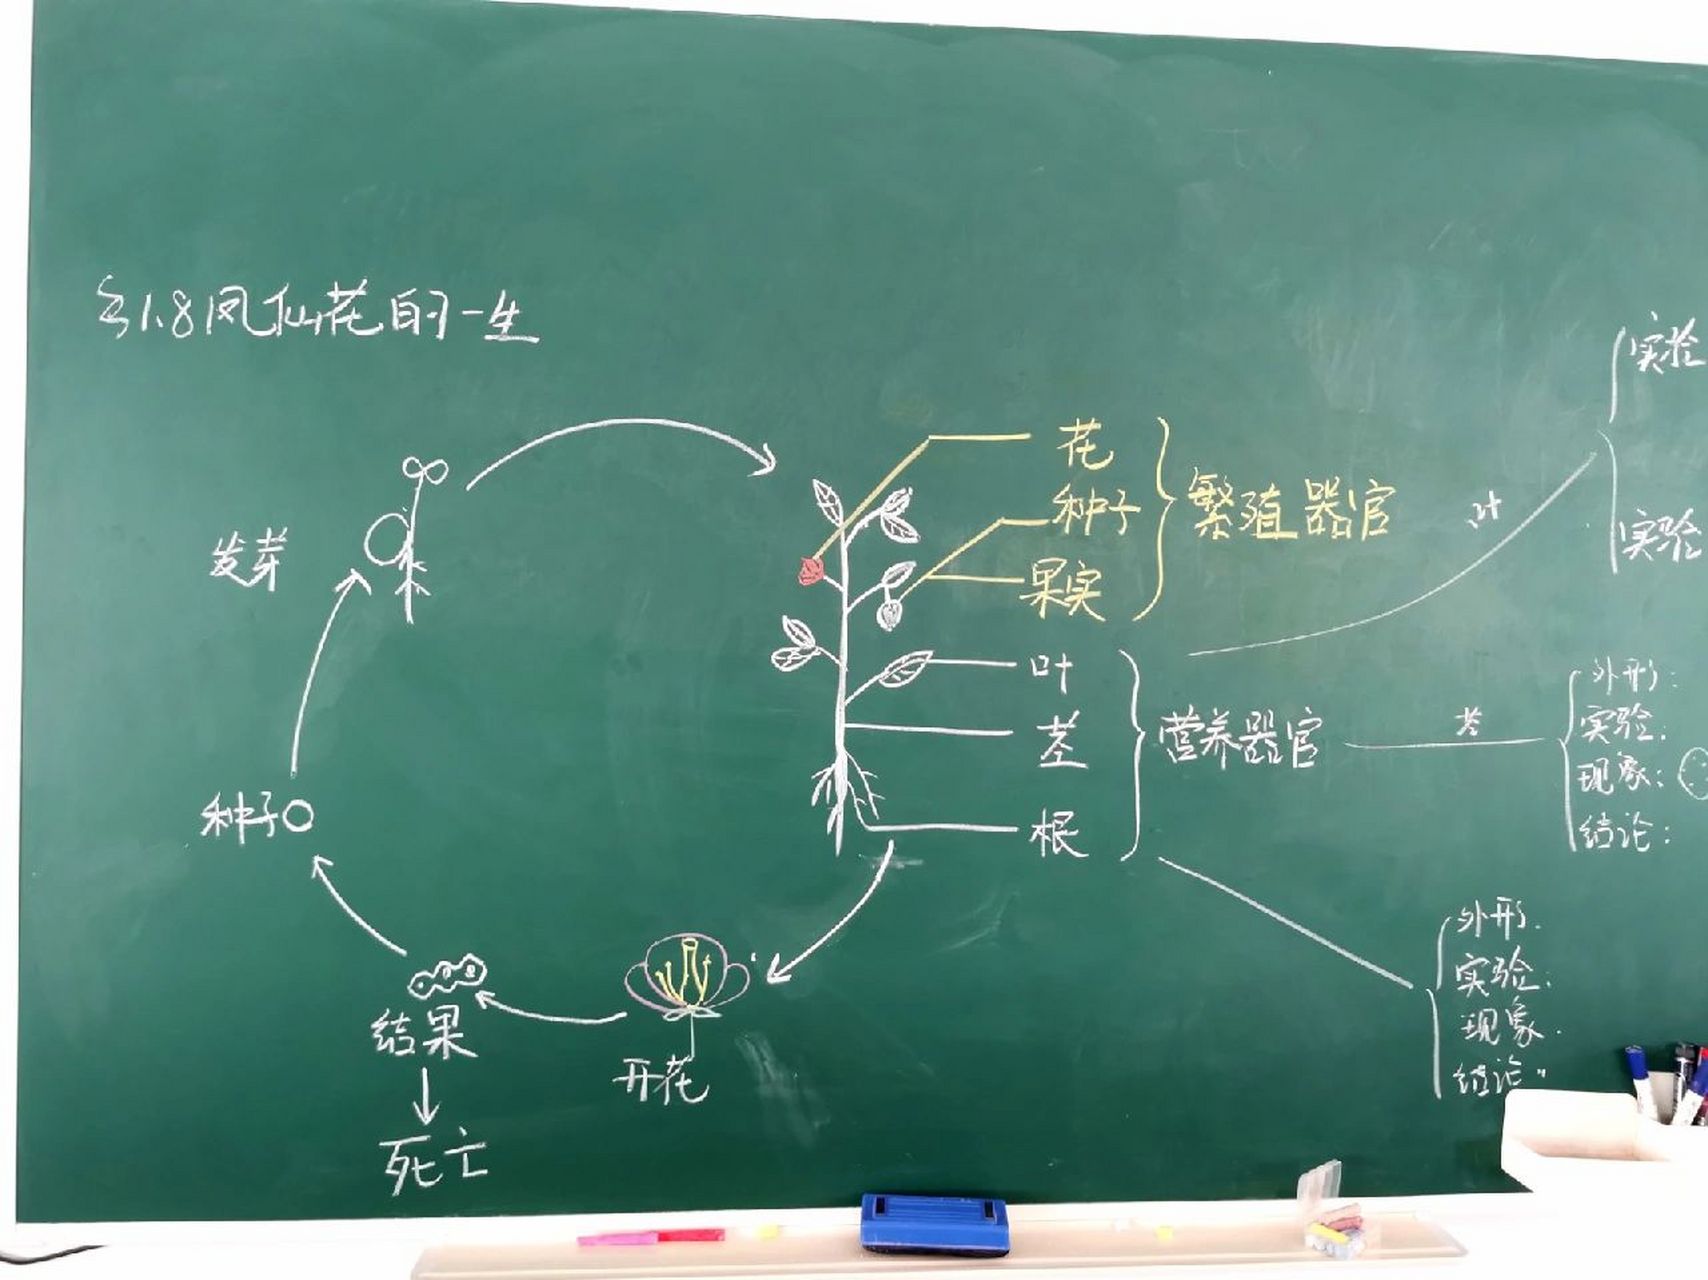 §1.8凤仙花的一生
发芽
种子
结果
死亡
开花
花
种子
果实
繁殖器官
叶
茎
根
营养器官
叶
实验
实验
茎
外形:
实验:
现象:
结论:
外形:
实验:
现象:
结论: